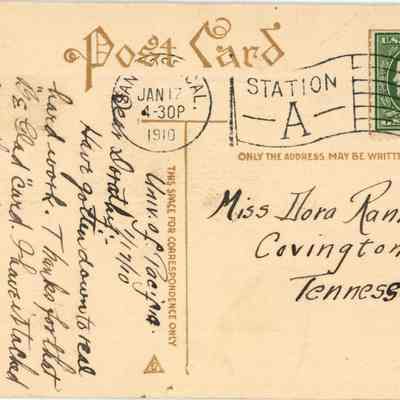 Post Card
JAN 17
4-30P
1910
CAL.
STATION
A
U.S.
ONLY THE ADDRESS MAY BE WRITTE
THIS SPACE FOR CORRESPONDENCE ONLY
Univ. of Pacific.
1/17/10
Dear Dorothy:
Have gotten down to real
hard work. Thanks for that
"card. I have it tacked
Miss Nora Ran
Covington
Tenness